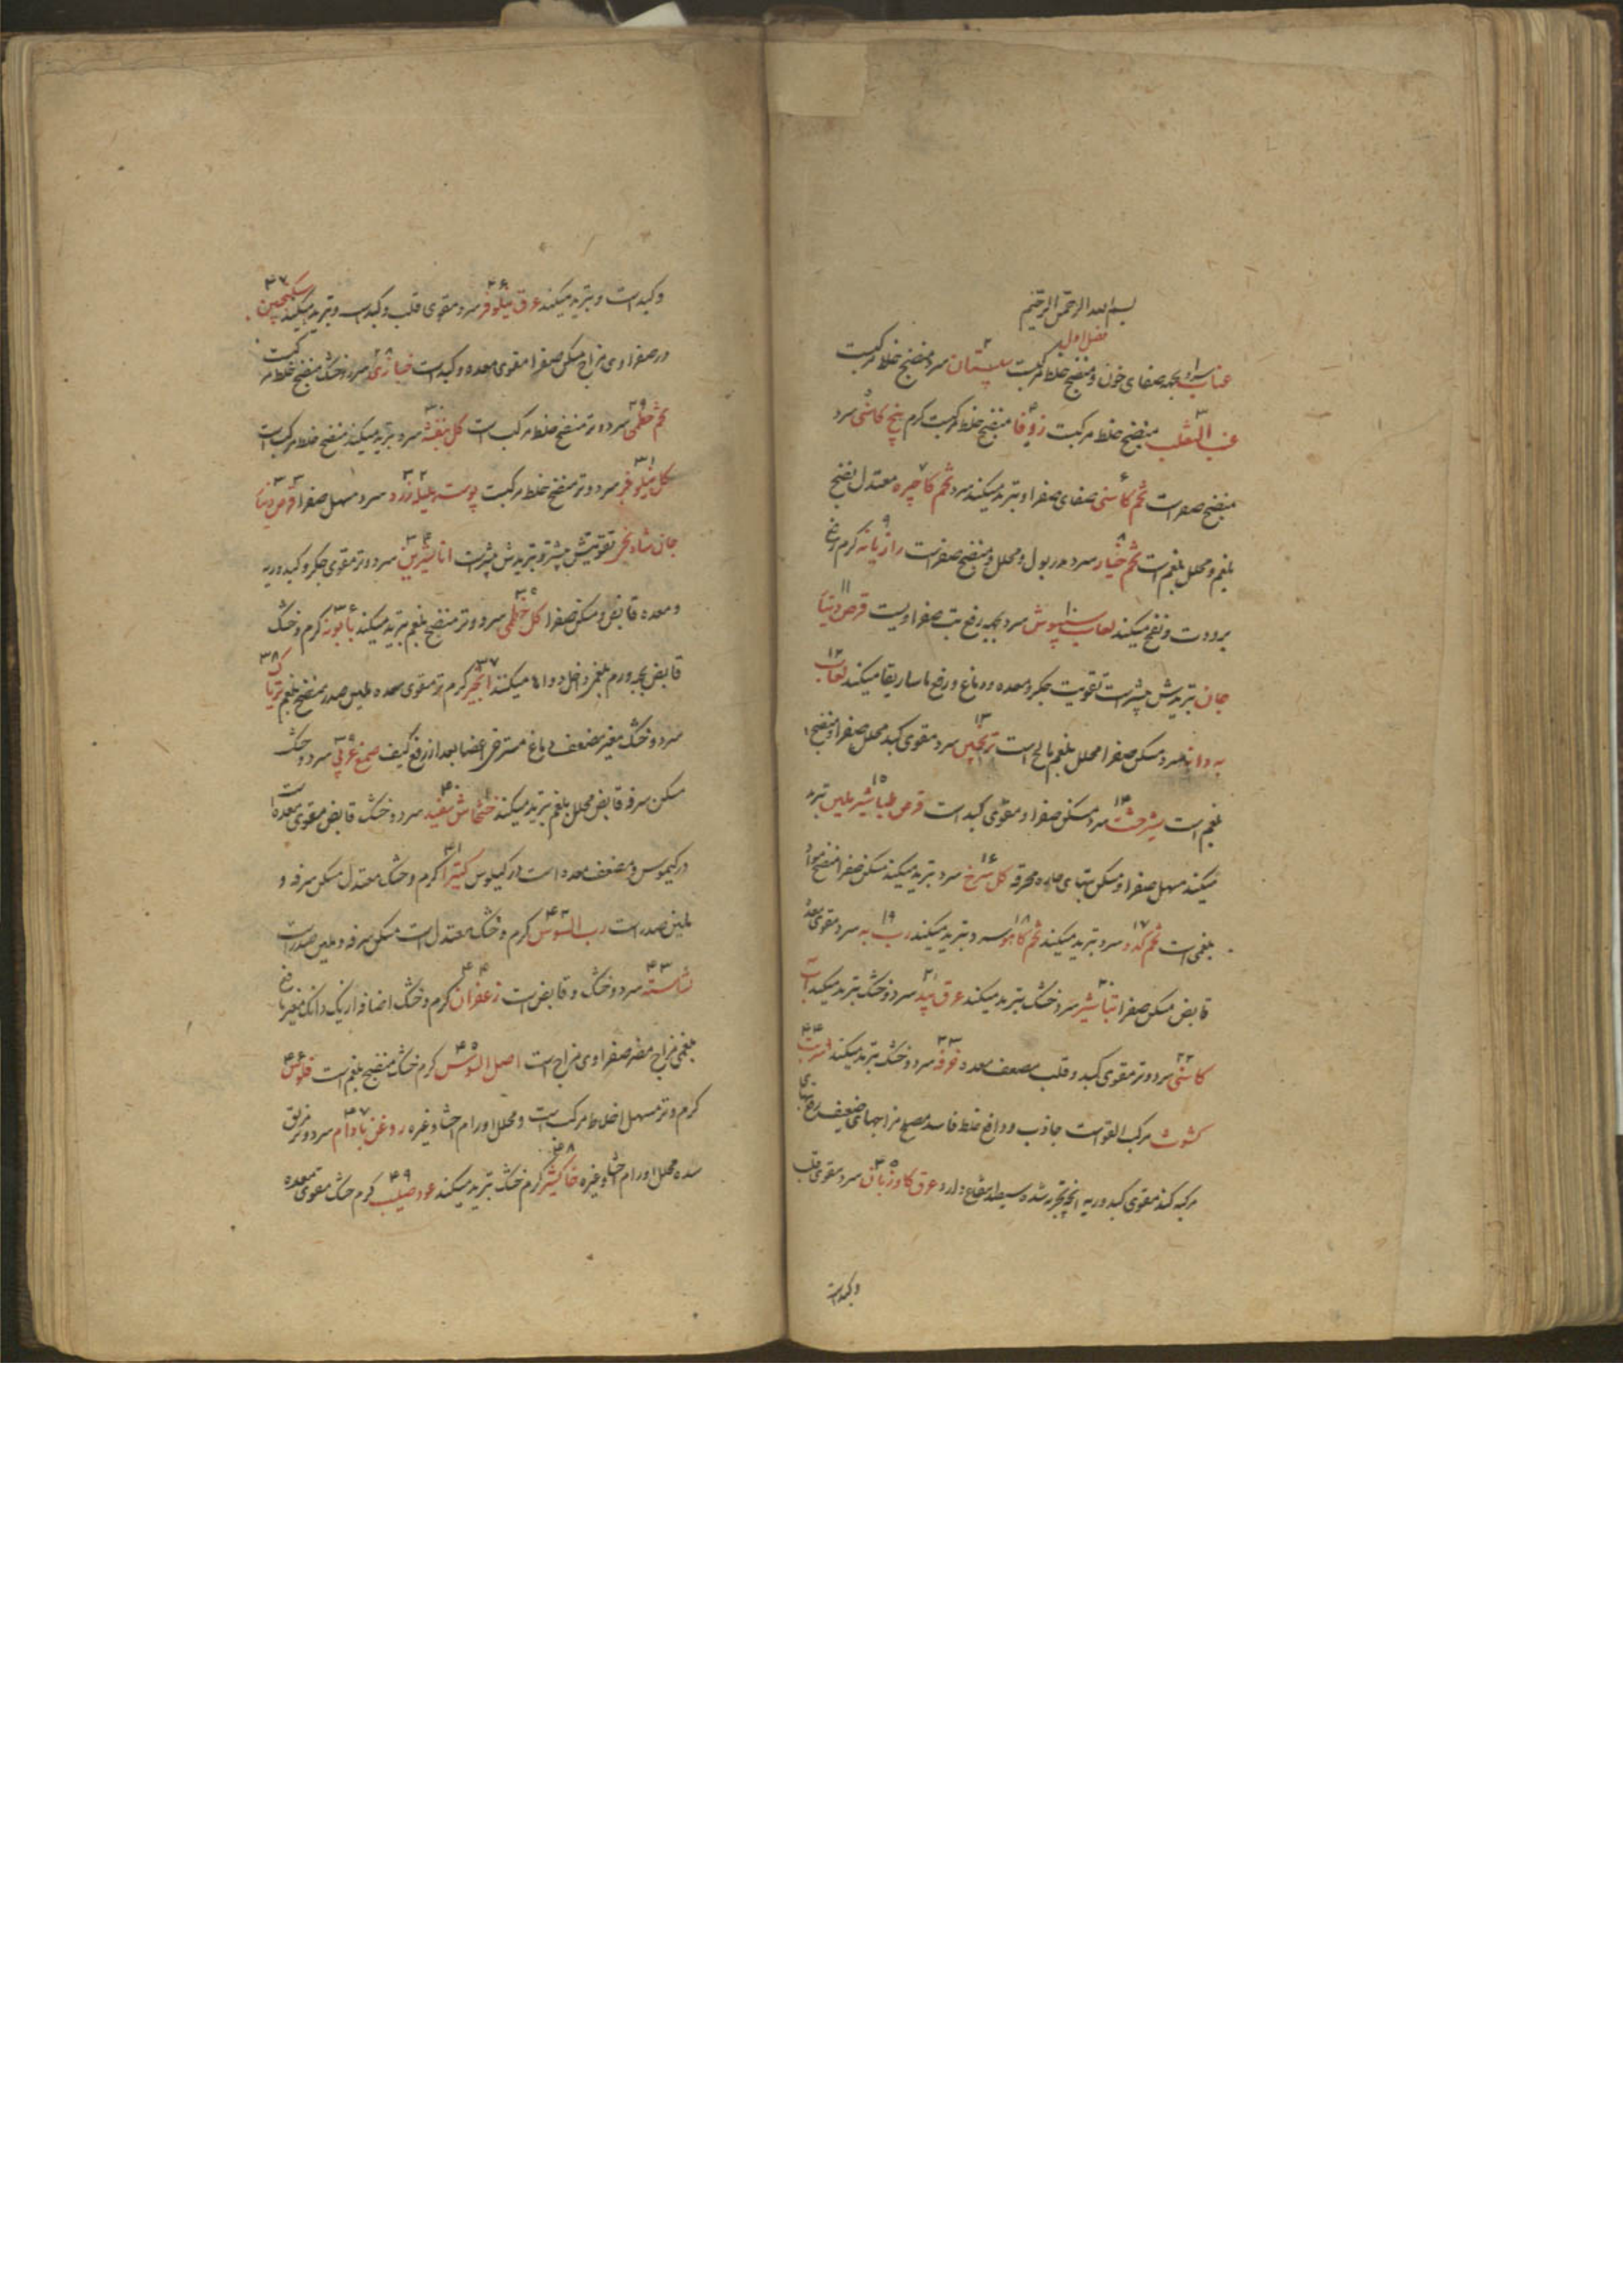 بسم الله الرحمن الرحیم
فصل اول
عناب سرد بجهه صفای خون و منضج خلط مرکبست ۲ سپستان سرد منضج خلط مرکبست
۳ عنب الثعلب منضج خلط مرکبست ۴ زوفا منضج خلط مرکبست کرم ۵ بیخ کاسنی سرد
منضج صفراست ۶ تخم کاسنی صفای صفرا و تبرید میکند سرد ۷ تخم کاجیره معتدل نضج
بلغم و محلل بلغم است ۸ تخم خیار سرد مدر بول و محلل و منضج صفراست ۹ رازیانه کرم رفع
برودت و نفخ میکند ۱۰ لعاب سپیوش سرد بجهه رفع تب صفراویست ۱۱ قرص دنیا
جان تبریدش بیشتر است تقویت جکر و معده و دماغ و رفع ماساریقا میکند ۱۲ لعاب
به دانه سرد مسکن صفرا محلل بلغم مالح است ۱۳ ترنجبین سرد مقوی کبد محلل صفرا و منضج
بلغم است ۱۴ شیرخشت سرد مسکن صفرا و مقوی کبد است ۱۵ قرص طباشیر ملین تبرید
میکند مسهل صفرا و مسکن تبهای حاده محرقه ۱۶ کل سرخ سرد تبرید میکند مسکن صفرا منضج مواد
بلغمی است ۱۷ تخم کدو سرد تبرید میکند ۱۸ تخم کاهو سرد تبرید میکند ۱۹ رب به سرد مقوی معده
قابض مسکن صفرا ۲۰ تباشیر سرد خشک تبرید میکند ۲۱ عرق بید سرد و خشک تبرید میکند آب
۲۲ کاسنی سرد و تر مقوی کبد و قلب مضعف معده ۲۳ خرفه سرد و خشک تبرید میکند ۲۴ شربت
کشوث مرکب القواست جاذب و دافع خلط فاسد مصلح مزاجهای ضعیف رفع تبهای
مرکبه کند مقوی کبد و ریه انچه تجربه شده بسیار نفع دارد ۲۵ عرق کاوزبان سرد مقوی قلب
و کبد است
و کبد است و تبرید میکند ۲۶ عرق نیلوفر سرد مقوی قلب و کبد است و تبرید میکند ۲۷ سکنجبین
در صفراوی مزاج مسکن صفرا مقوی معده و کبد است ۲۸ خبازی سرد و خشک منضج خلط مرکبست
۲۹ تخم خطمی سرد و تر منضج خلط مرکب است ۳۰ کل بنفشه سرد تبرید میکند منضج خلط مرکب است
۳۱ کل نیلوفر سرد و تر منضج خلط مرکبست ۳۲ پوست هلیله زرد سرد مسهل صفرا ۳۳ قرص دنیا
جان شاه نجر تقویتش بیشتر و تبریدش بیشتر است ۳۴ انار شیرین سرد و تر مقوی جکر و کبد و ریه
و معده قابض و مسکن صفرا ۳۵ کل خطمی سرد و تر منضج بلغم تبرید میکند ۳۶ بابونه کرم و خشک
قابض بجهه ورم بلغم داخل دواها میکنند ۳۷ انجیر کرم و تر مقوی معده ملین صدر منضج بلغم ۳۸ تریاک
سرد و خشک مغیر مضعف دماغ مسترخی اعضا بعد از رفع کیف ۳۹ صمغ عربی سرد و خشک
مسکن سرفه قابض محلل بلغم تبرید میکند ۴۰ خشخاش سفید سرد و خشک قابض مقوی معده است
در کیموس و مضعف معده است در کیلوس ۴۱ کتیرا کرم و خشک معتدل مسکن سرفه و
ملین صدر است ۴۲ رب السوس کرم و خشک معتدل است مسکن سرفه و ملین صدر است
۴۳ نشاسته سرد و خشک و قابض است ۴۴ زعفران کرم و خشک اضافه از یک دانک مغیر دماغ
بلغمی مزاج مضر صفراوی مزاج است ۴۵ اصل السوس کرم خشک منضج بلغم است ۴۶ فلوس
کرم و تر مسهل اخلاط مرکب است و محلل اورام احشا و غیره ۴۷ روغن بادام سرد و تر مزلق
سده محلل اورام احشا و غیره ۴۸ خاکشیر کرم خشک تبرید میکند ۴۹ عود صلیب کرم خشک مقوی معده